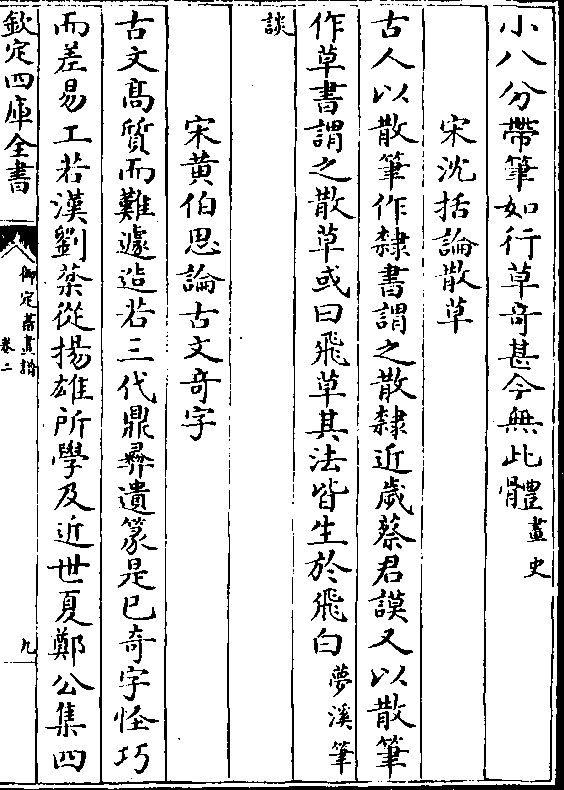 小八分帶筆如行草奇甚今無此體畫史
宋沈括論散草
古人以散筆作隸書謂之散隸近歲蔡君謨又以散筆
作草書謂之散草或曰飛草其法皆生於飛白夢溪筆
談
宋黄伯思論古文奇字
古文髙質而難遽造若三代鼎彞遺篆是已奇字怪巧
而差易工若漢劉棻從揚雄所學及近世夏鄭公集四
欽定四庫全書
御定書畫譜
卷二
九